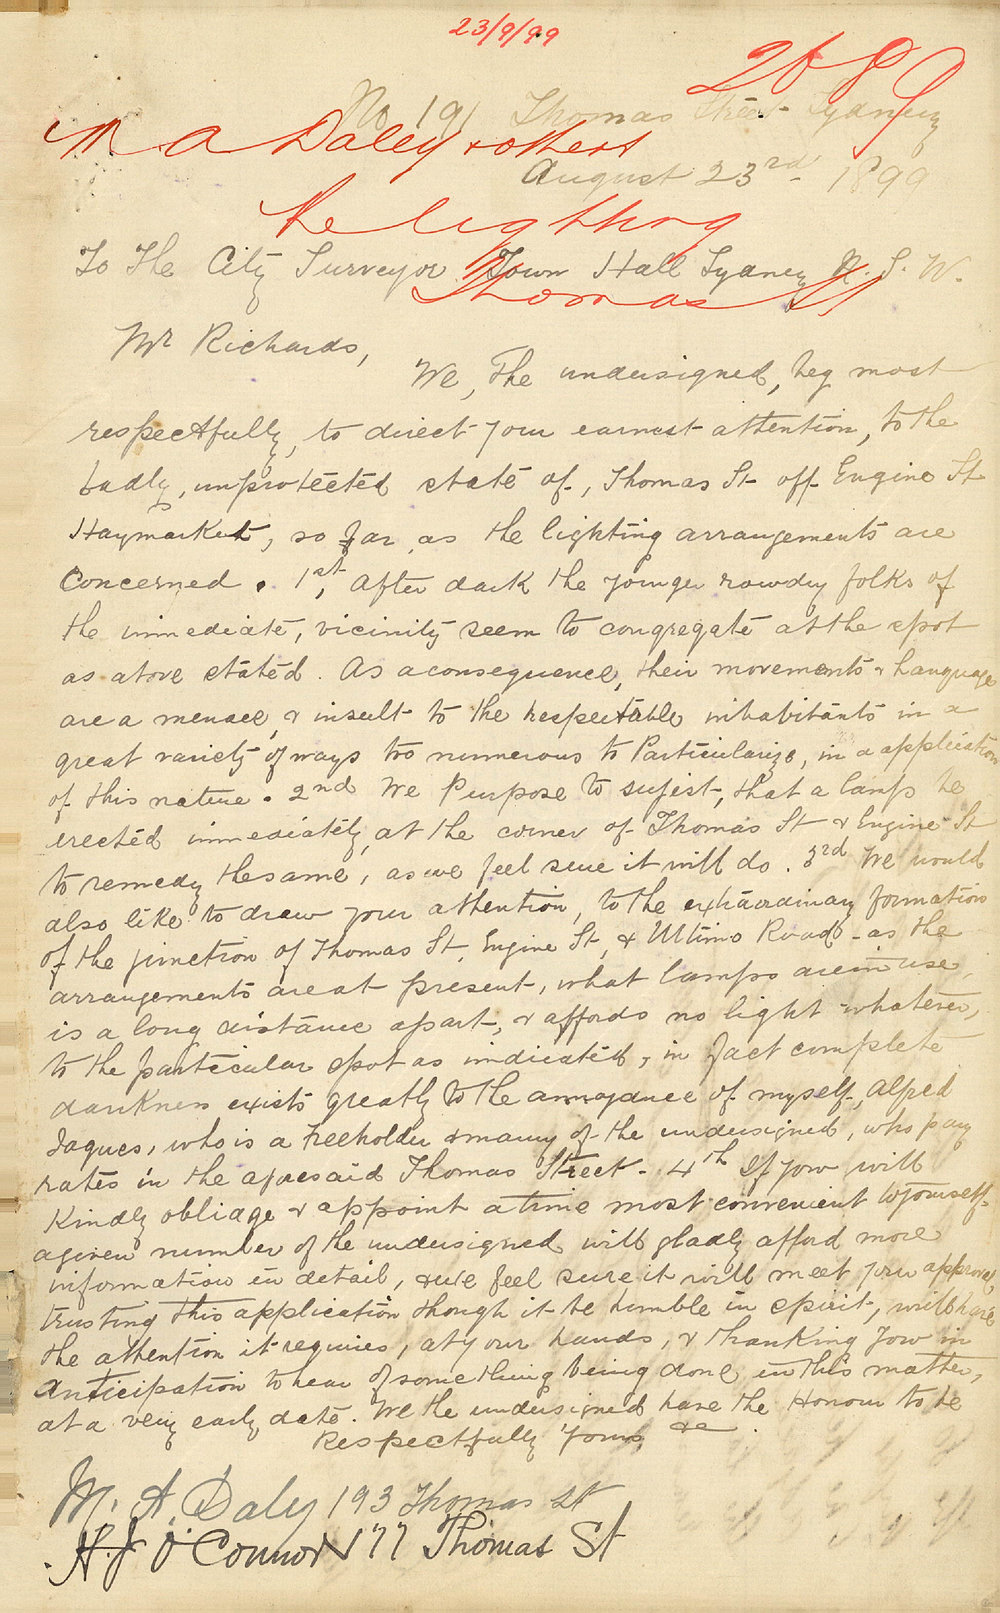 23/9/99
2689
No 191 Thomas Street Sydney
M A Daley & others
August 23rd 1899
Re lighting
To The City Surveyor Town Hall Sydney N. S. W.
Thomas St
Mr Richards,
We, The undersigned, beg most
respectfully, to direct your earnest attention, to the
badly, unprotected state of, Thomas St off Engine St
Haymarket, so far as the lighting arrangements are
Concerned. 1st, After dark the younger rowdy folks of
the immediate, vicinity seem to congregate at the spot
as above stated. As a consequence, their movements & Language
are a menace, & insult to the respectable inhabitants in a
great variety of ways too numerous to Particularize, in a application
of this nature. 2nd We Purpose to sugest, that a lamp be
erected immediately, at the corner of Thomas St & Engine St
to remedy the same, as we feel sure it will do. 3rd We would
also like to draw your attention, to the extraordinary formation
of the junction of Thomas St, Engine St, & Ultimo Road - as the
arrangements are at present, what lamps are in use,
is a long distance apart, & affords no light whatever,
to the particular spot as indicated, in fact complete
darkness exists greatly to the annoyance of myself, Alfred
Jaques, who is a Freeholder & many of the undersigned, who pay
rates in the aforesaid Thomas Street - 4th If you will
Kindly obliage & appoint a time most convenient to yourself-
a given number of the undersigned will gladly afford more
information in detail, & we feel sure it will meet your approval,
trusting this application though it be humble in spirit, will have
the attention it requires, at your hands, & thanking you in
Anticipation to hear of something being done in this matter,
at a very early date. We the undersigned have the Honour to be
Respectfully Yours &c.
M. A. Daley 193 Thomas St
H. J O'Connor 177 Thomas St